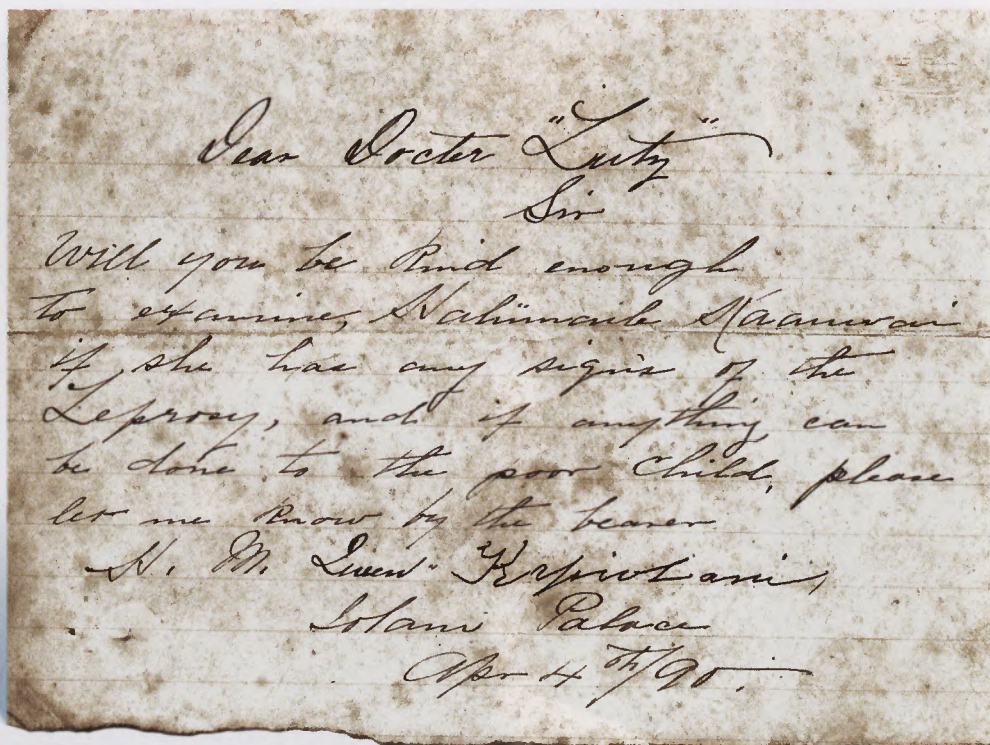 Dear Docter "Lutz"
Sir
Will you be kind enough
to examine, Kaanwai
if she has any signs of the
Leprosy, and if anything can
be done to the poor child, please
let me know by the bearer
H. M. Queen" Kapiolani,
Iolani Palace
Apr 4th/90.